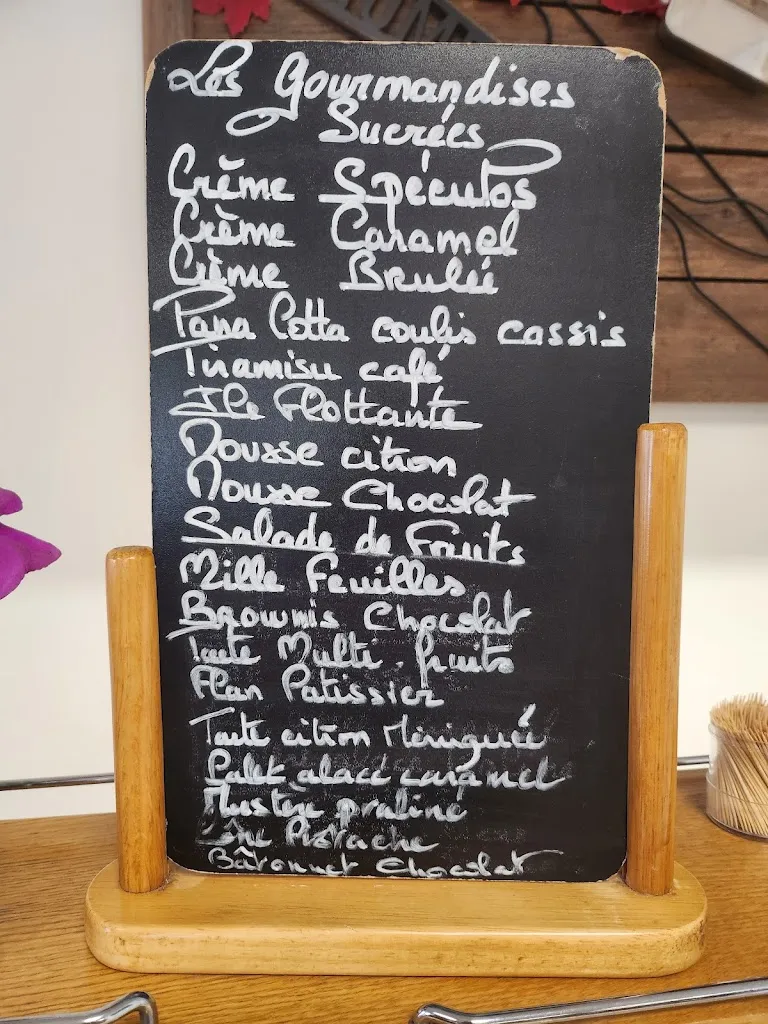 Les Gourmandises
Sucrées
Crème Spéculos
Crème Caramel
Crème Brulée
Pana Cotta coulis cassis
Tiramisu café
Ile Flottante
Mousse citron
Mousse Chocolat
Salade de Fruits
Mille Feuilles
Brownis Chocolat
Tarte Multi-fruits
Flan Patissier
Tarte citron Méringuée
Palet glacé caramel
Mystère praline
Cône Pistache
Bâtonnet Chocolat